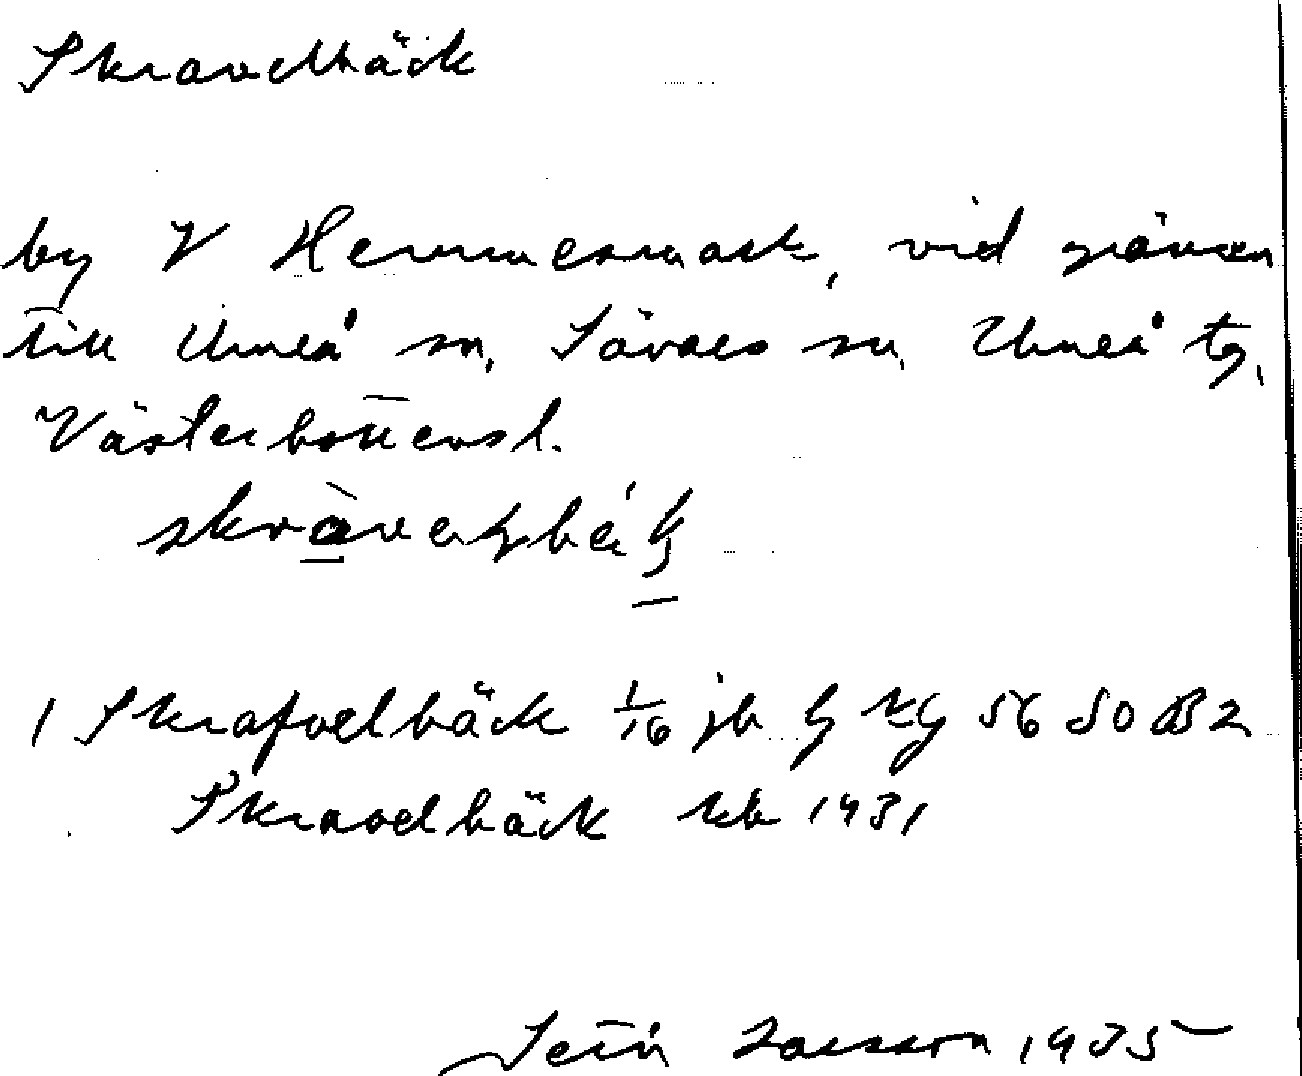 Skravelbäck
by V Hemmesmark, vid gränsen
till Umeå sn, Sävars sn, Umeå tg,
Västerbottensl.
1 Skrafvelbäck 1/16 jb kg 56 50 B2
Skravelbäck rkb 1931
Seth Larsson 1935